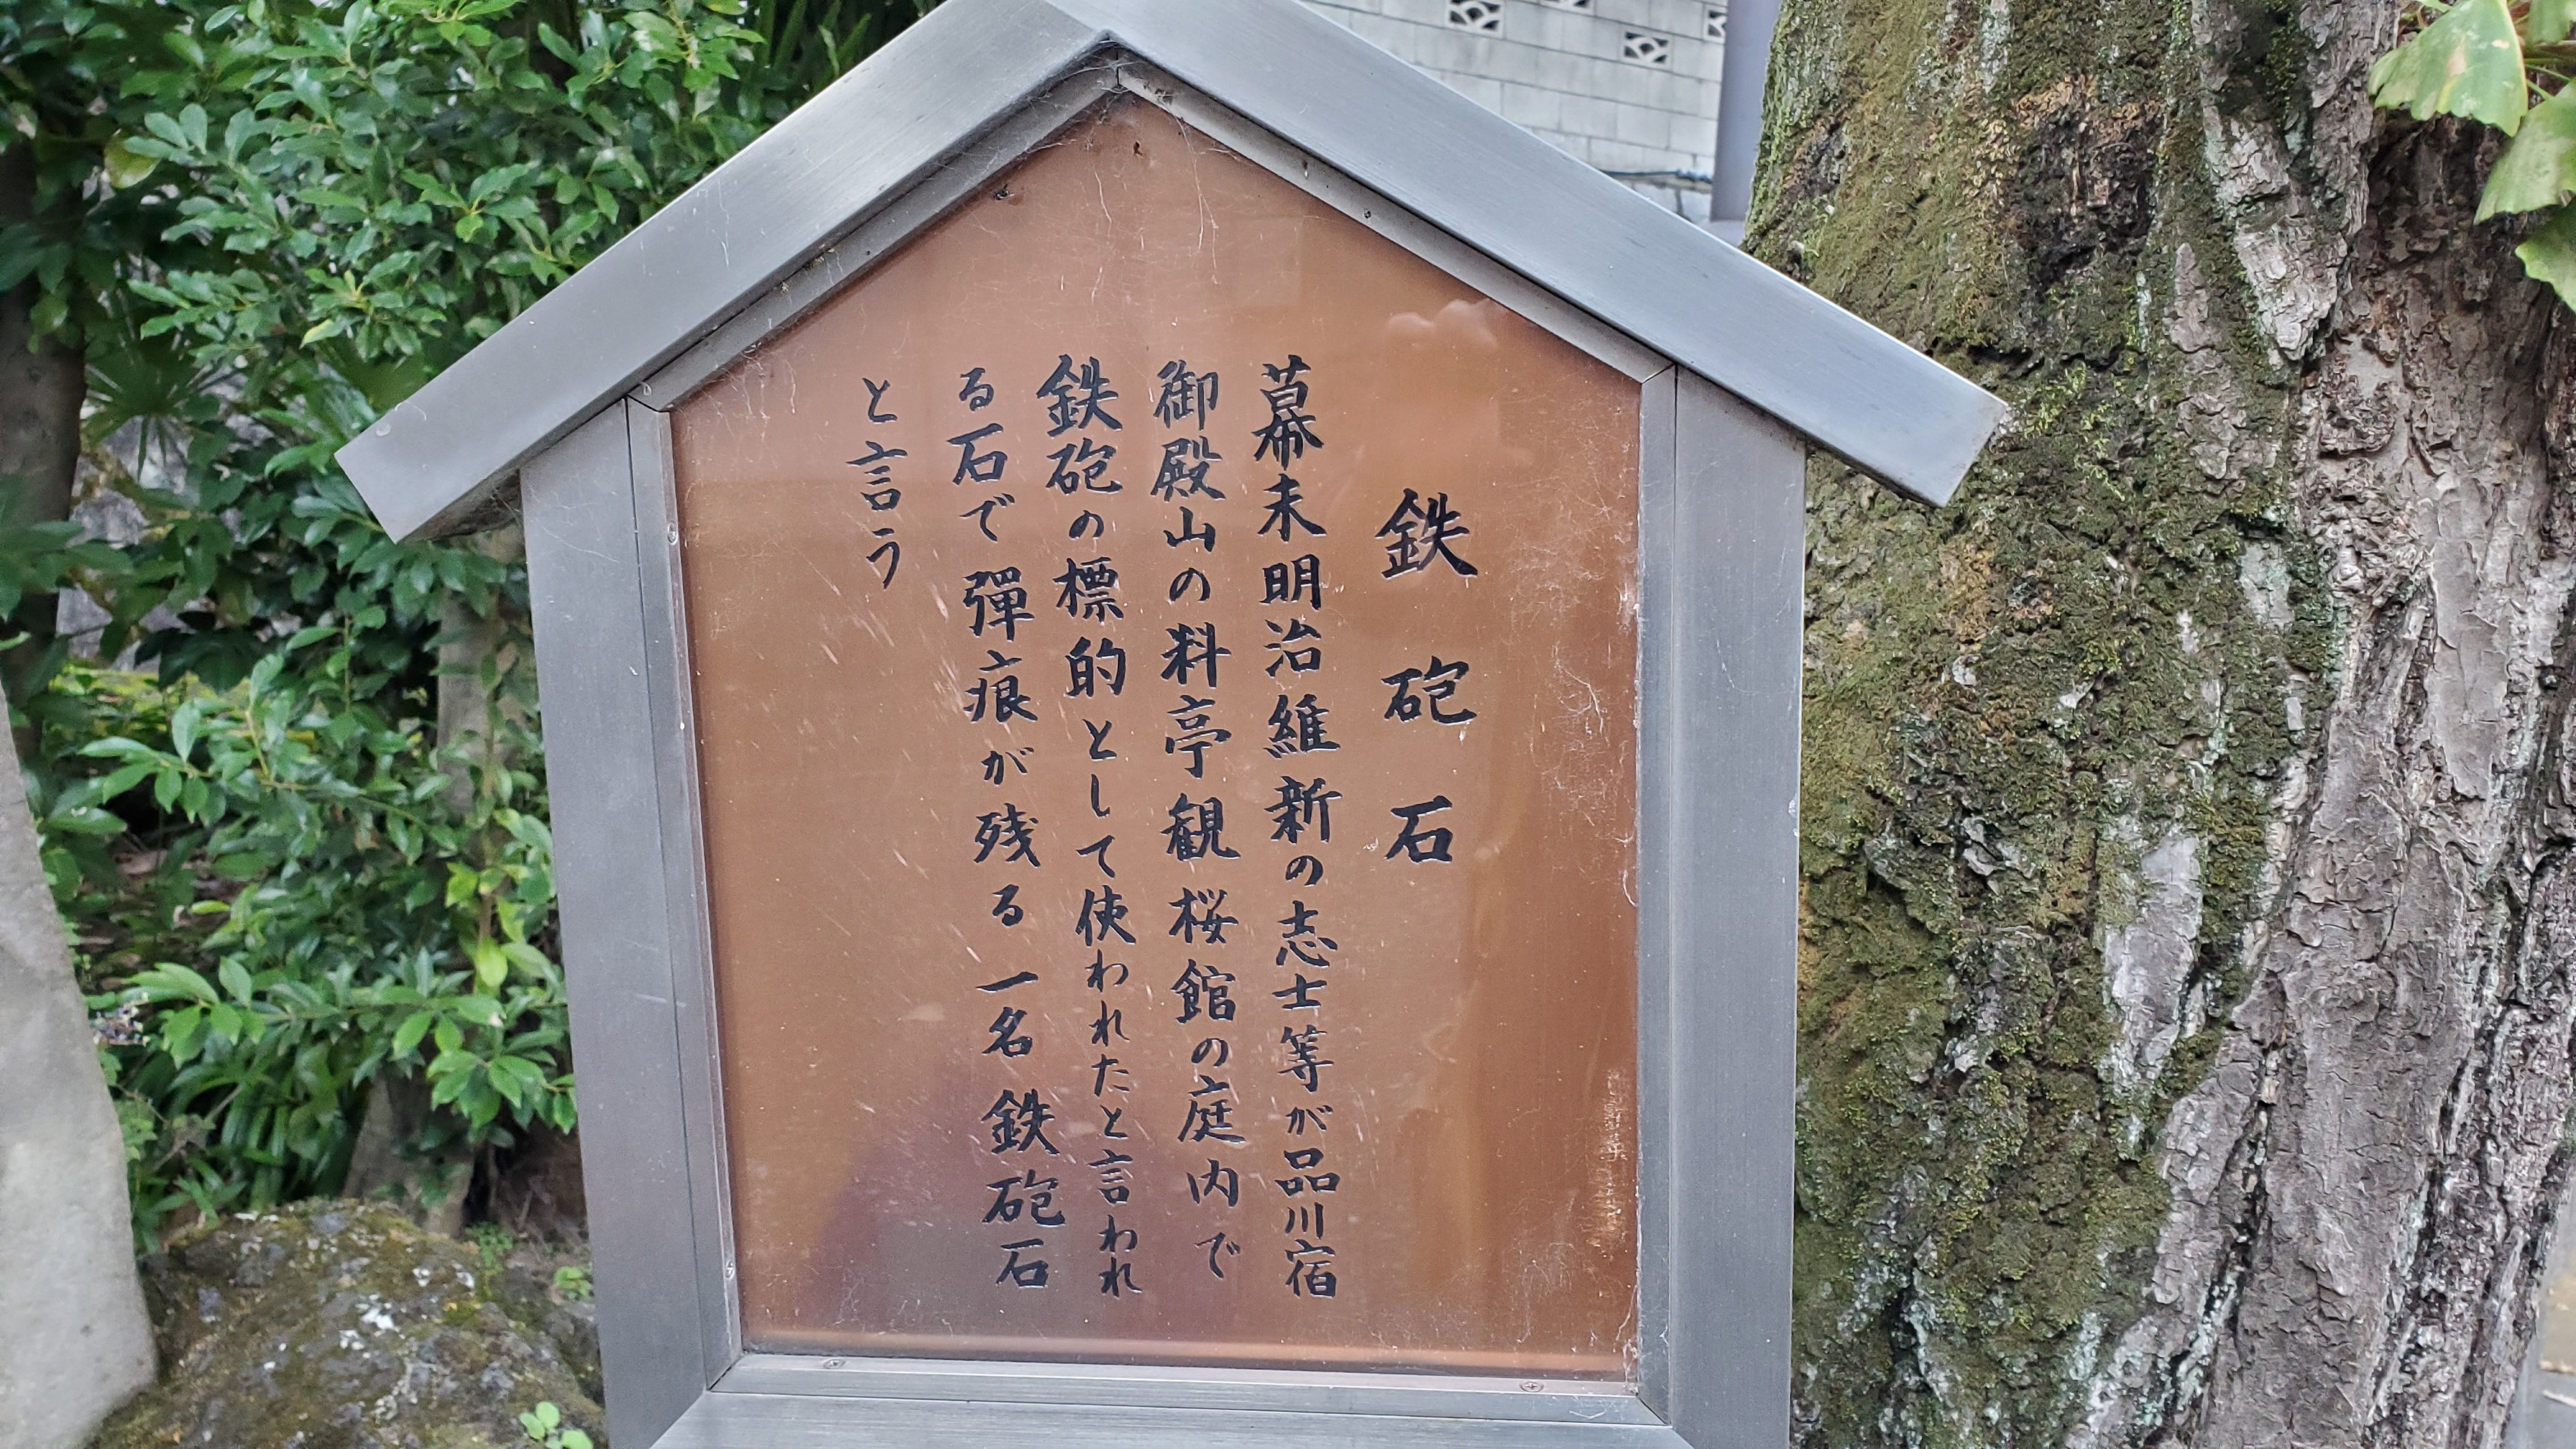 鉄砲石
幕末明治維新の志士等が品川宿
御殿山の料亭観桜館の庭内で
鉄砲の標的として使われたと言われ
る石で彈痕が残る一名鉄砲石
と言う